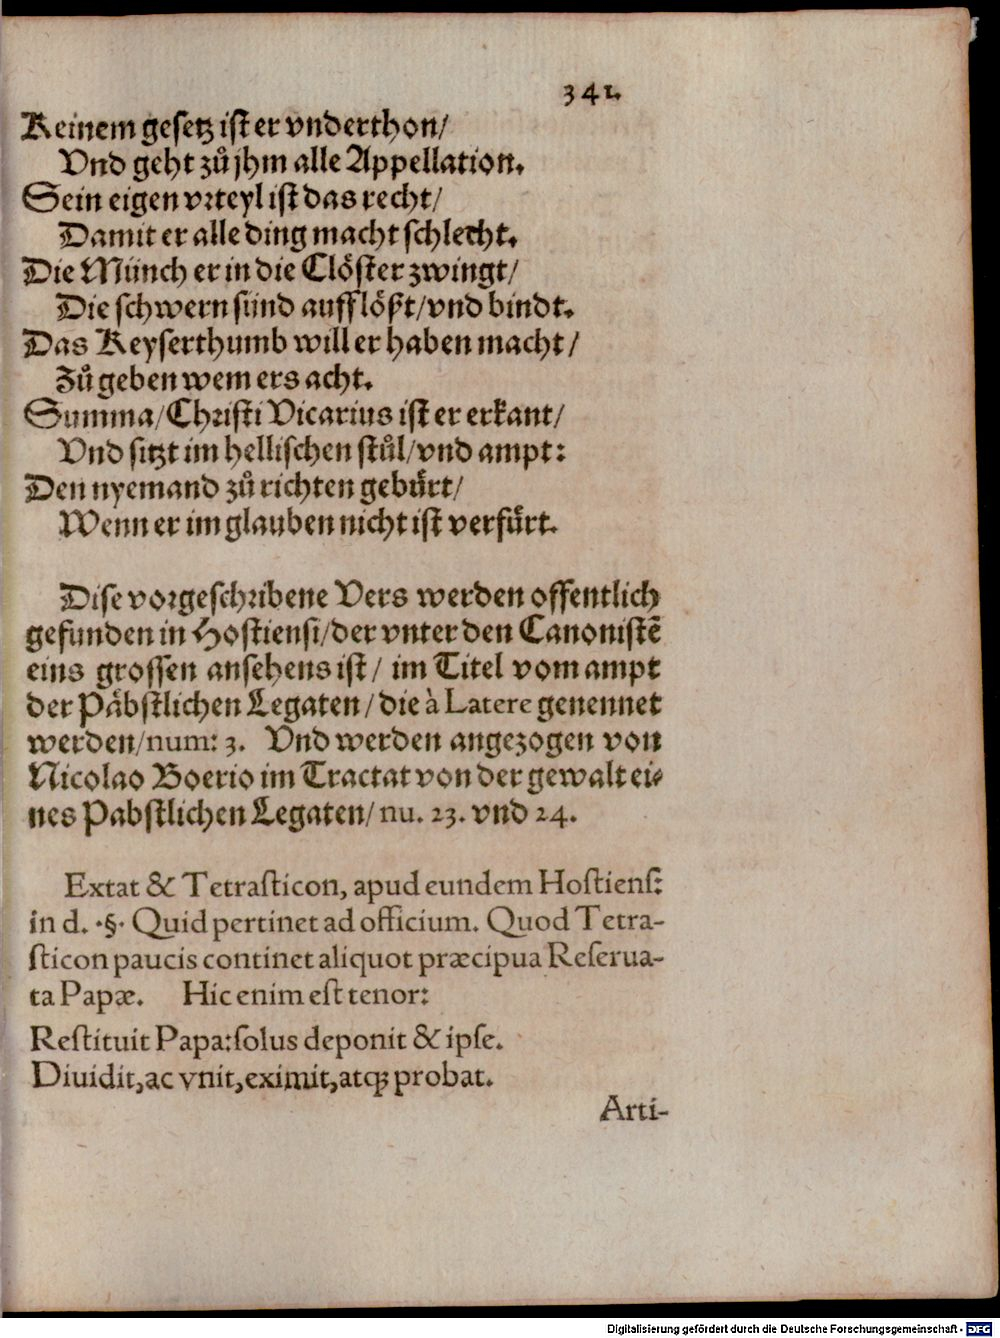 341.
Keinem gesetz ist er vnderthon/
Vnd geht zů jhm alle Appellation.
Sein eigen vrteyl ist das recht/
Damit er alle ding macht schlecht.
Die Münch er in die Clöster zwingt/
Die schwern sünd aufflößt/vnd bindt.
Das Keyserthumb will er haben macht/
Zů geben wem ers acht.
Summa/Christi Vicarius ist er erkant/
Vnd sitzt im hellischen stůl/vnd ampt:
Den nyemand zů richten gebürt/
Wenn er im glauben nicht ist verfürt.
Dise vorgeschribene Vers werden offentlich
gefunden in Hostiensi/der vnter den Canonistẽ
eins grossen ansehens ist/ im Titel vom ampt
der Päbstlichen Legaten/die à Latere genennet
werden/num: 3. Vnd werden angezogen von
Nicolao Boerio im Tractat von der gewalt ei-
nes Pabstlichen Legaten/nu. 23. vnd 24.
Extat & Tetrasticon, apud eundem Hostiens:
in d. §. Quid pertinet ad officium. Quod Tetra-
sticon paucis continet aliquot præcipua Reserua-
ta Papæ. Hic enim est tenor:
Restituit Papa:solus deponit & ipse.
Diuidit,ac vnit,eximit,atq; probat.
Arti-
Digitalisierung gefördert durch die Deutsche Forschungsgemeinschaft - DFG